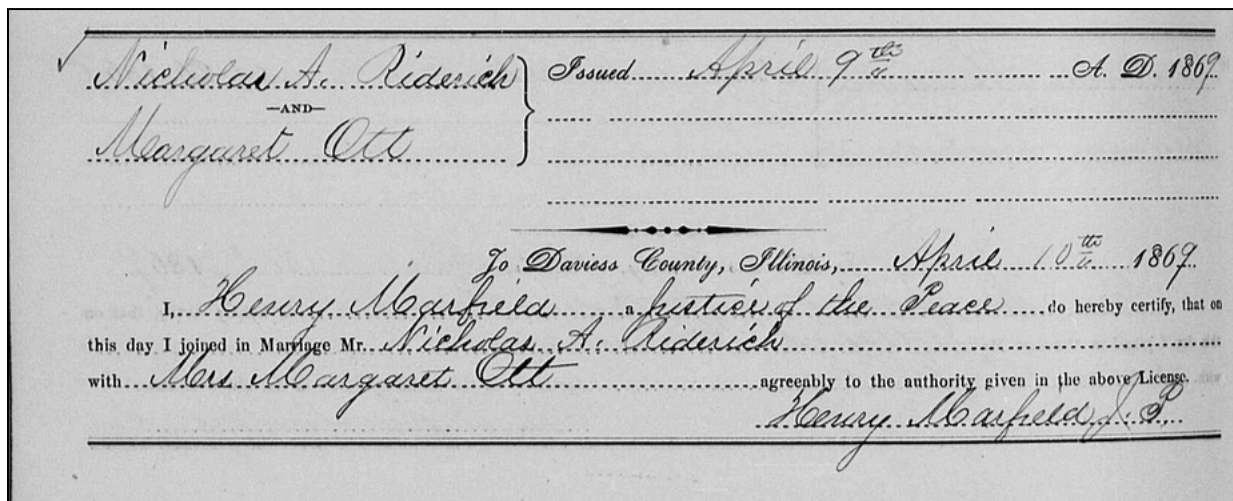 Nicholas A. Riderich
—AND—
Margaret Ott
Issued April 9th A. D. 1869.
Jo Daviess County, Illinois, April 10th 1869.
I, Henry Marfield a Justice of the Peace do hereby certify, that on
this day I joined in Marriage Mr. Nicholas A. Riderich
with Mrs Margaret Ott agreeably to the authority given in the above License.
Henry Marfield J. P.